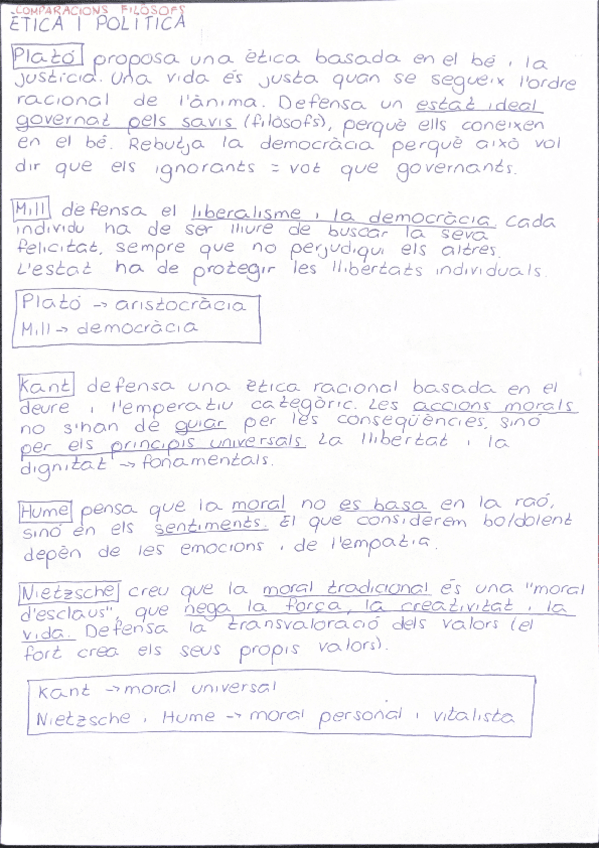 COMPARACIONS FILÒSOFS
ÈTICA I POLÍTICA
Plató proposa una ètica basada en el bé i la
justícia. Una vida és justa quan se segueix l'ordre
racional de l'ànima. Defensa un estat ideal
governat pels savis (filòsofs), perquè ells coneixen
en el bé. Rebutja la democràcia perquè això vol
dir que els ignorants = vot que governants.
Mill defensa el liberalisme i la democràcia. Cada
individu ha de ser lliure de buscar la seva
felicitat, sempre que no perjudiqui els altres.
L'estat ha de protegir les llibertats individuals.
Plató → aristocràcia
Mill → democràcia
Kant defensa una ètica racional basada en el
deure i l'emperatiu categòric. Les accions morals
no s'han de guiar per les conseqüències, sinó
per els principis universals. La llibertat i la
dignitat → fonamentals.
Hume pensa que la moral no es basa en la raó,
sinó en els sentiments. El que considerem bo/dolent
depèn de les emocions i de l'empatia.
Nietzsche creu que la moral tradicional és una "moral
d'esclaus", que nega la força, la creativitat i la
vida. Defensa la transvaloració dels valors (el
fort crea els seus propis valors).
Kant → moral universal
Nietzsche i Hume → moral personal i vitalista